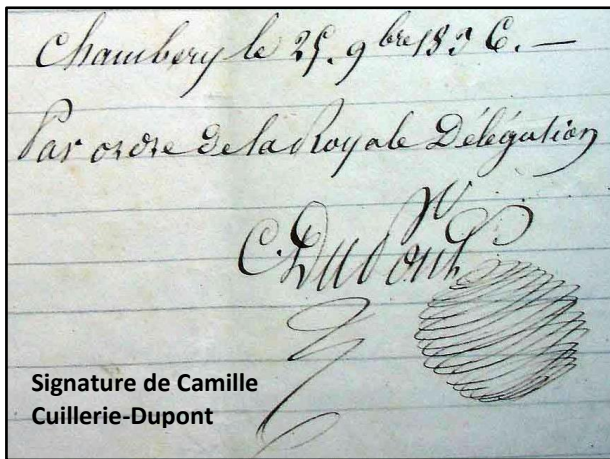 Chambery le 25. 9bre 1836.—
Par ordre de la Royale Délégation
C. DuPont
Signature de Camille
Cuillerie-Dupont